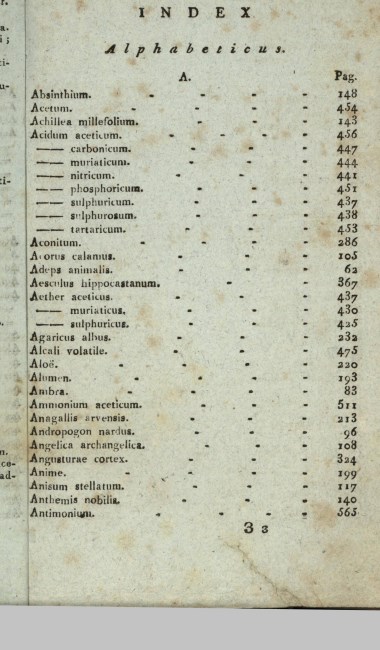 INDEX
Alphabeticus.
A. Pag.
Absinthium. - - - - 148
Acetum. - - - - 454
Achillea millefolium. - - - 143
Acidum aceticum. - - - - 456
—— carbonicum. - - - 447
—— muriaticum. - - - 444
—— nitricum. - - - 441
—— phosphoricum. - - - 451
—— sulphuricum. - - - 437
—— sulphurosum. - - - 438
—— tartaricum. - - - 453
Aconitum. - - - - 286
Acorus calamus. - - - 105
Adeps animalis. - - - 62
Aesculus hippocastanum. - - - 367
Aether aceticus. - - - 437
—— muriaticus. - - - 430
—— sulphuricus. - - - 425
Agaricus albus. - - - 232
Alcali volatile. - - - 475
Aloë. - - - - 220
Alumen. - - - - 193
Ambra. - - - - 83
Ammonium aceticum. - - - 511
Anagallis arvensis. - - - 213
Andropogon nardus. - - - 96
Angelica archangelica. - - - 108
Angusturae cortex. - - - 324
Anime. - - - - 199
Anisum stellatum. - - - 117
Anthemis nobilis. - - - 140
Antimonium. - - - - 565
3 3